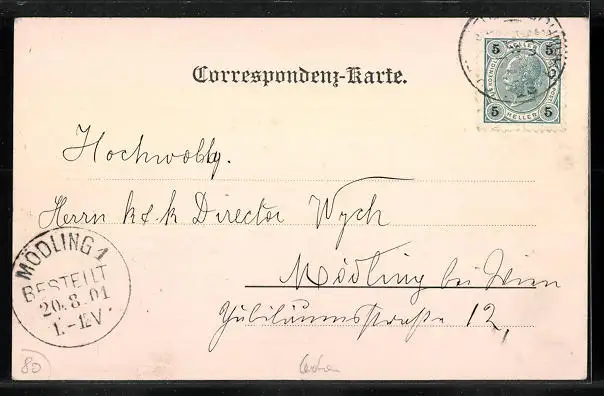 Correspondenz-Karte.
5 HELLER 5
5 HELLER 5
Hochwohlg.
Herrn k & k Director Wych
Mödling bei Wien
Jubiläumsstraße 12,
MÖDLING 1
BESTELLT
20.8.01
1.-12V
80